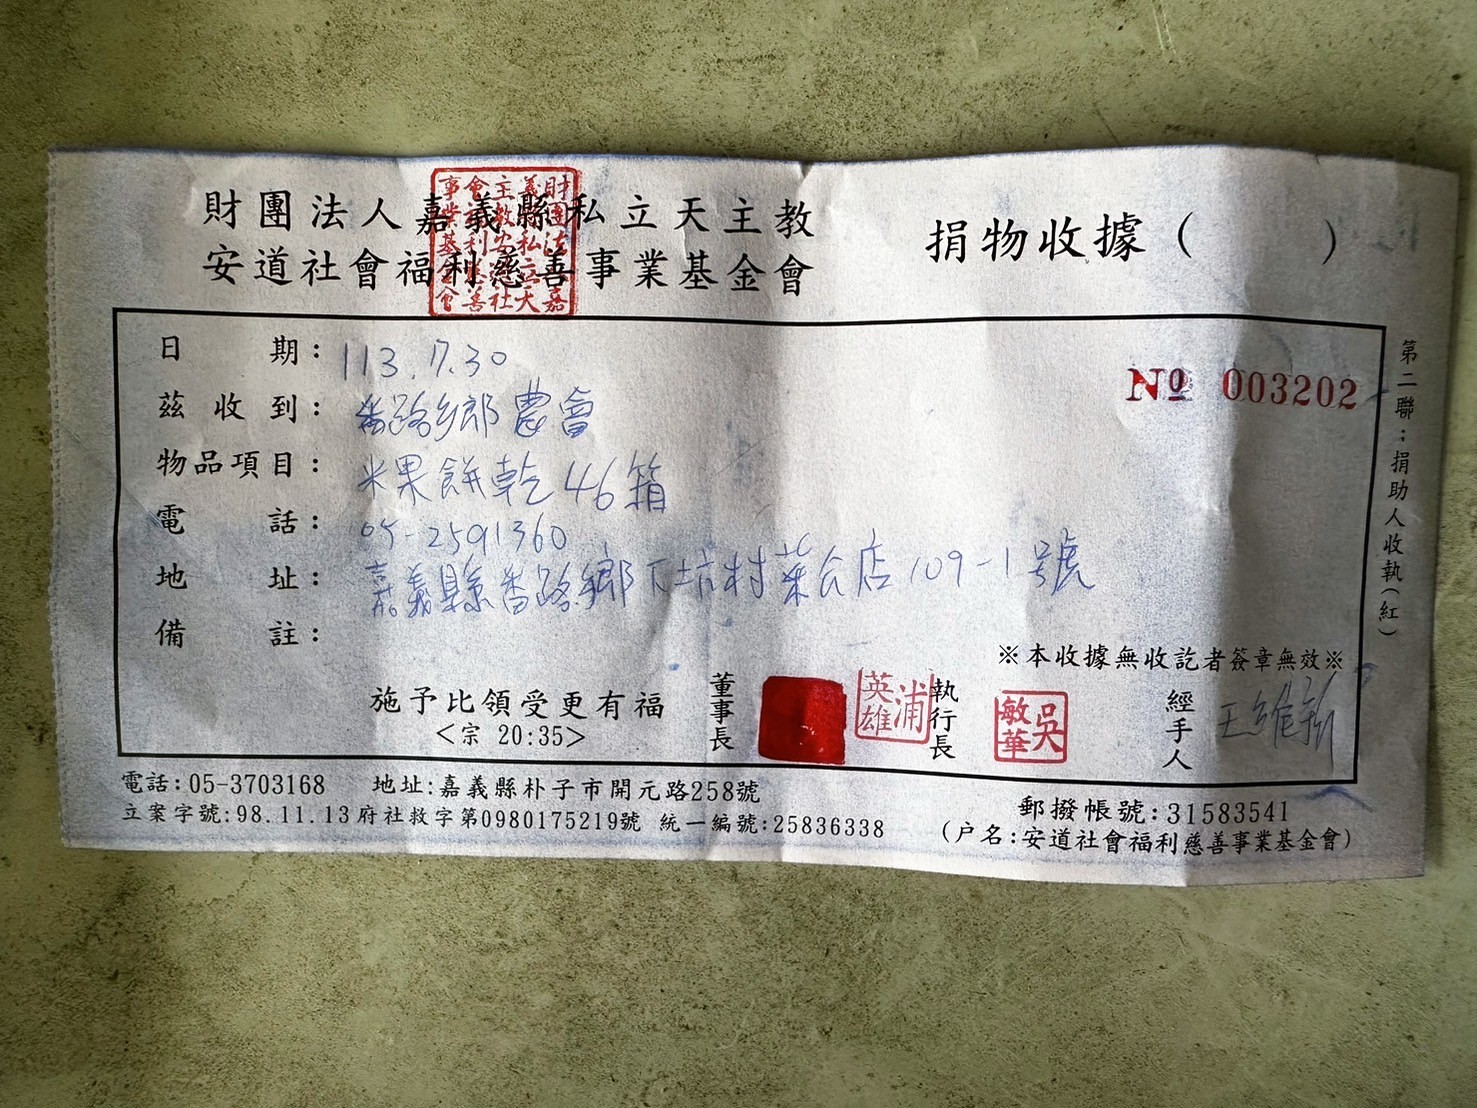 財團法人嘉義縣私立天主教
安道社會福利慈善事業基金會
捐物收據（　　）
日期：113.7.30
No 003202
茲收到：番路鄉農會
物品項目：米果餅乾46箱
電話：05-2591360
地址：嘉義縣番路鄉下坑村菜公店109-1號
備註：
※本收據無收訖者簽章無效※
施予比領受更有福
<宗 20:35>
董事長
浦英雄
執行長
吳敏華
經手人 王維新
第二聯：捐助人收執（紅）
電話：05-3703168 地址：嘉義縣朴子市開元路258號
立案字號：98.11.13府社救字第0980175219號 統一編號：25836338
郵撥帳號：31583541
（户名：安道社會福利慈善事業基金會）
財團法人嘉義縣私立天主教安道社會福利慈善事業基金會